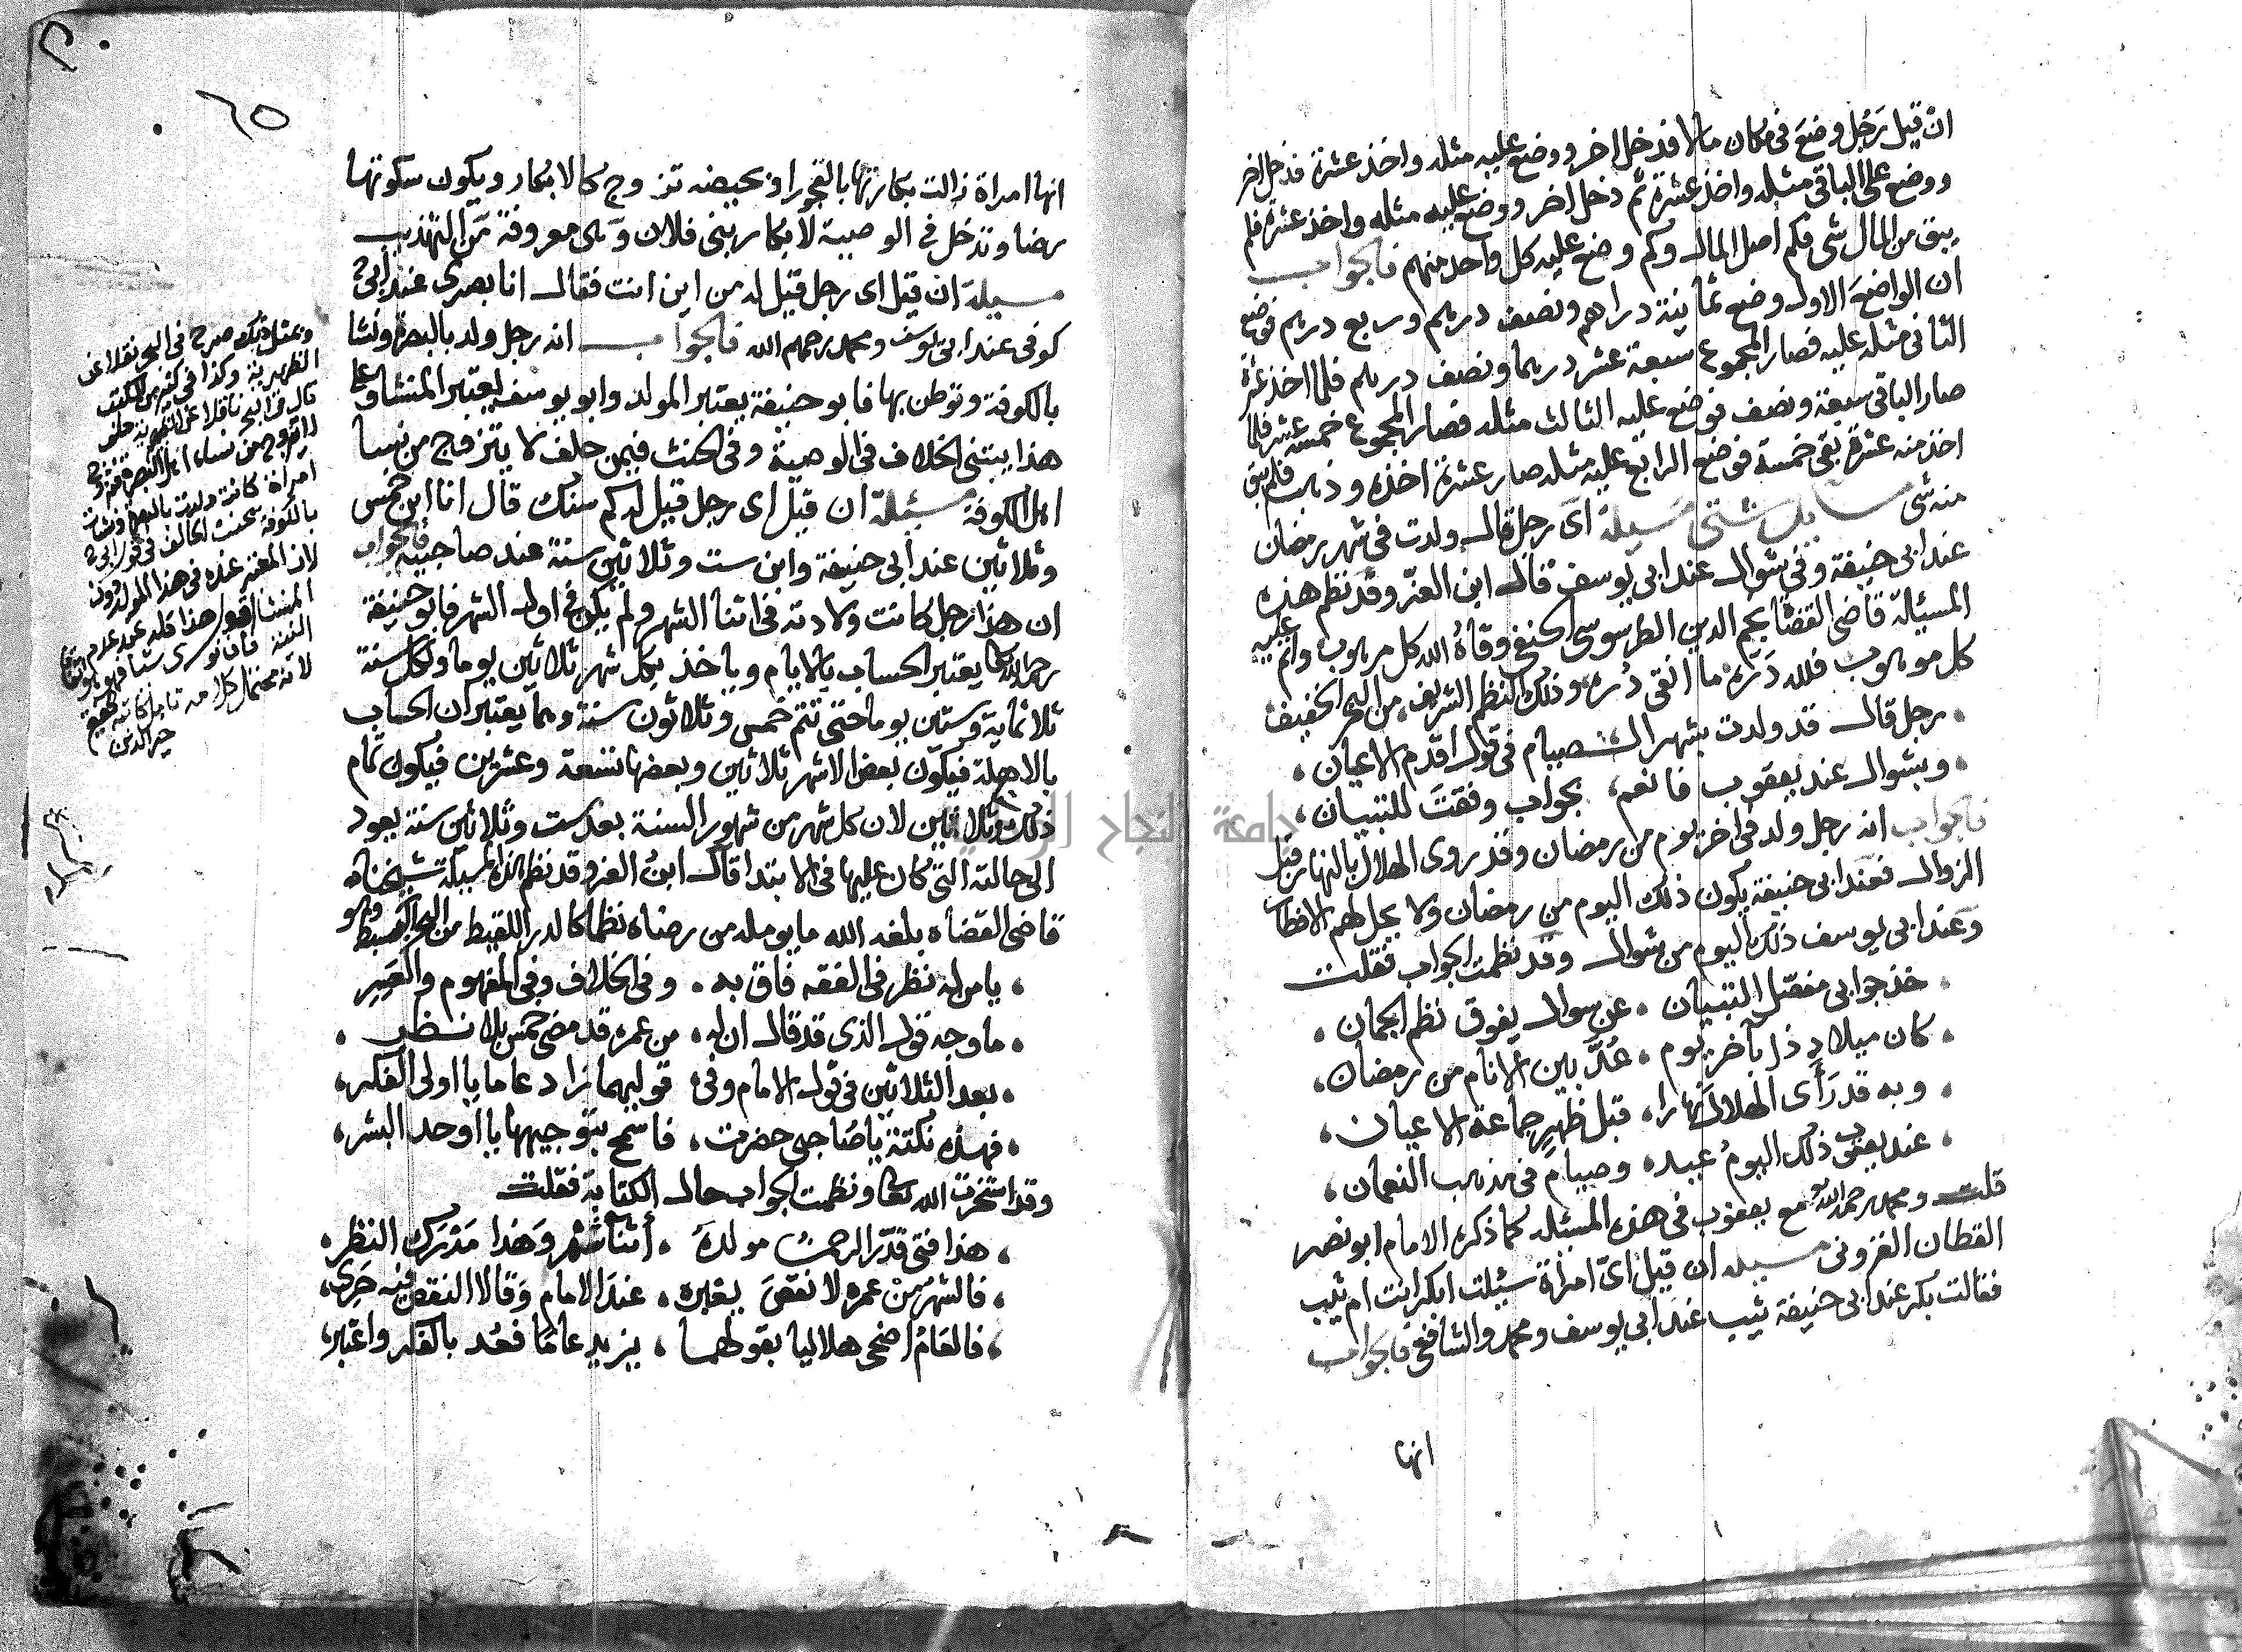 ان قيل رَجل وضعَ في مكان مالا فدخل اخر ووضع عليه مثله واخذ عشرة فدخل اخر
ووضع على الباقي مثله واخذ عشرة ثم دخل اخر ووضع عليه مثله واخذ عشرة فلم
يبق من المال شي فكم اصل المال وكم وضع عليه كل واحد منهم فالجواب
ان الواضعَ الاول وضع ثمانية دراهم ونصف درهم وربع درهم فوضع
الثاني مثله عليه فصار المجموع سبعة عشر درهما ونصف درهم فلما اخذ عشرة
صار الباقي سبعة ونصف فوضع عليه الثالث مثله فصار المجموع خمسة عشر فلما
اخذ منه عشرة بقي خمسة فوضع الرابع عليه مثله صار عشرة اخذه وذهب فلم يبق
منه شي مسايل شتى مسيلة اى رجل قال ولدت في شهر رمضان
عند ابى حنيفة وفي شوال عند ابي يوسف قال ابن العزّ وقد نظم هذه
المسئلة قاضي القضا نجم الدين الطرسوسي الحنفي وقاهُ الله كل مرهوب واتم عليه
كل موهوب فلله دَرّه ما انقى دُره وذلك النظم الشريف من البحر الخفيف
رجل قال قد ولدت بشهر الصيام في قول اقدم الاعيان
وبشوال عند يعقوب فانعم بجواب وفقتَ للتبيان
فالجواب انه رجل ولد في اخر يوم من رمضان وقد روى الهلال بالنهار قبل
الزوال فعند ابى حنيفة يكون ذلك اليوم من رمضان ولا يحل لهم الافطار
وعند ابي يوسف ذلك اليوم من شوال وقد نظمت الجواب فقلت
خذ جوابي مفصّل التبيان عن سوال يفوق نظم الجمان
كان ميلاد ذا بآخر يوم عُدَّ بين الانام من رمضان
وبه قد رَأى الهلال نهارا قبل ظهر جماعة الاعيان
عند يعقوب ذلك اليومُ عيد وصيام في مذهب النعمان
قلت ومحمد رحمه الله مع يعقوب في هذه المسئله كما ذكره الامام ابو نصر
القطان الغزوني مسيله ان قيل اىّ امرأة سئلت ابكر انت ام ثيب
فقالت بكر عند ابى حنيفة ثيب عند ابي يوسف ومحمد والشافعي فالجواب
انها
٦٥
انها امراة زالت بكارتها بالفجور او بحيضه تزوج كالابكار ويكون سكوتها
رضا وتدخل في الوصية لابكار بنى فلان وهى معروفة من التهذيب
مسيلة ان قيل اى رجل قيل له من اين انت فقال انا بصرى عند ابى ح
كوفى عند ابى يوسف ومحمد رحمهم الله فالجواب انه رجل ولد بالبصرة ونشا
بالكوفة وتوطن بها فابو حنيفة يعتبر المولد وابو يوسف يعتبر المنشا وعلى
هذا يبتنى الخلاف في الوصية وفي الحنث فيمن حلف لا يتزوج من نسا
اهل الكوفة مسئلة ان قيل اى رجل قيل له كم سنك قال انا ابن خمس
وثلاثين عند أبي حنيفة وابن ست وثلاثين سنة عند صاحبيه فالجواب
ان هذا رجل كانت ولادته في اثنا الشهر ولم يكن في اول الشهر فابو حنيفة
رحمه الله يعتبر الحساب بالايام وياخذ بكل شهر ثلاثين يوما ولكل سنة
ثلاثماية وستين يوما حتى تتم خمس وثلاثون سنة وهما يعتبران الحساب
بالاهلة فيكون بعض الاشهر ثلاثين وبعضها تسعة وعشرين فيكون تمام
ذلك وثلاثين لان كل شهر من شهور السنة بعد ست وثلاثين سنة يعود
الى حالته التى كان عليها في الابتدا قال ابنُ العز وقد نظم هذه المسيلة شيخناه
قاضي القضاه بلغه الله مايومله من رضاه نظما كالدر اللقيط من البحر البسيط وهو
يا من له نظر في الفقه فاق به وفي الخلاف وفي المفهوم والعبر
ما وجه قول الذي قد قال ان له من عمره قد مضى خمس بلا نظر
بعد الثلاثين في قول الامام وفي قوليهما زاد عاما يا اولى الفكر
فهذه نكتة يا صاحبى حضرت فاسمح بتوجيهها يا اوحد البشر
وقد استخرت الله تعالى ونظمت الجواب حال الكتابة فقلت
هذا فتى قدّر الرحمن مولدهُ أثنا شهر وَهذا مَدْرَك النظر
فالشهر مِنْ عمره لا نقصَ يعتبره عند الامام وَقالا النقص فيه حَرِى
فالعَامُ اضحى هلاليا بقولهما يزيد عامًا فعُد بالفكر واعتبر
وبمثل ذلك صرح في البحر نقلا عن
الظهيرية وكذا في كثير من الكتب
قال في البحر ناقلا عن الظهيرية حلف
لا يتزوج من نساء اهل البصرة فتزوج
امراة كانت ولدت بالبصرة ونشات
بالكوفة يحنث الحالف في قول ابى ح
لان المعتبر عنده في هذا المولد دون
المنشا اقول هذا كله عند عدم
النية فان نوى شيا فهو
لانه محتمل كلامه
خير الدين
جامعة النجاح الوطنية